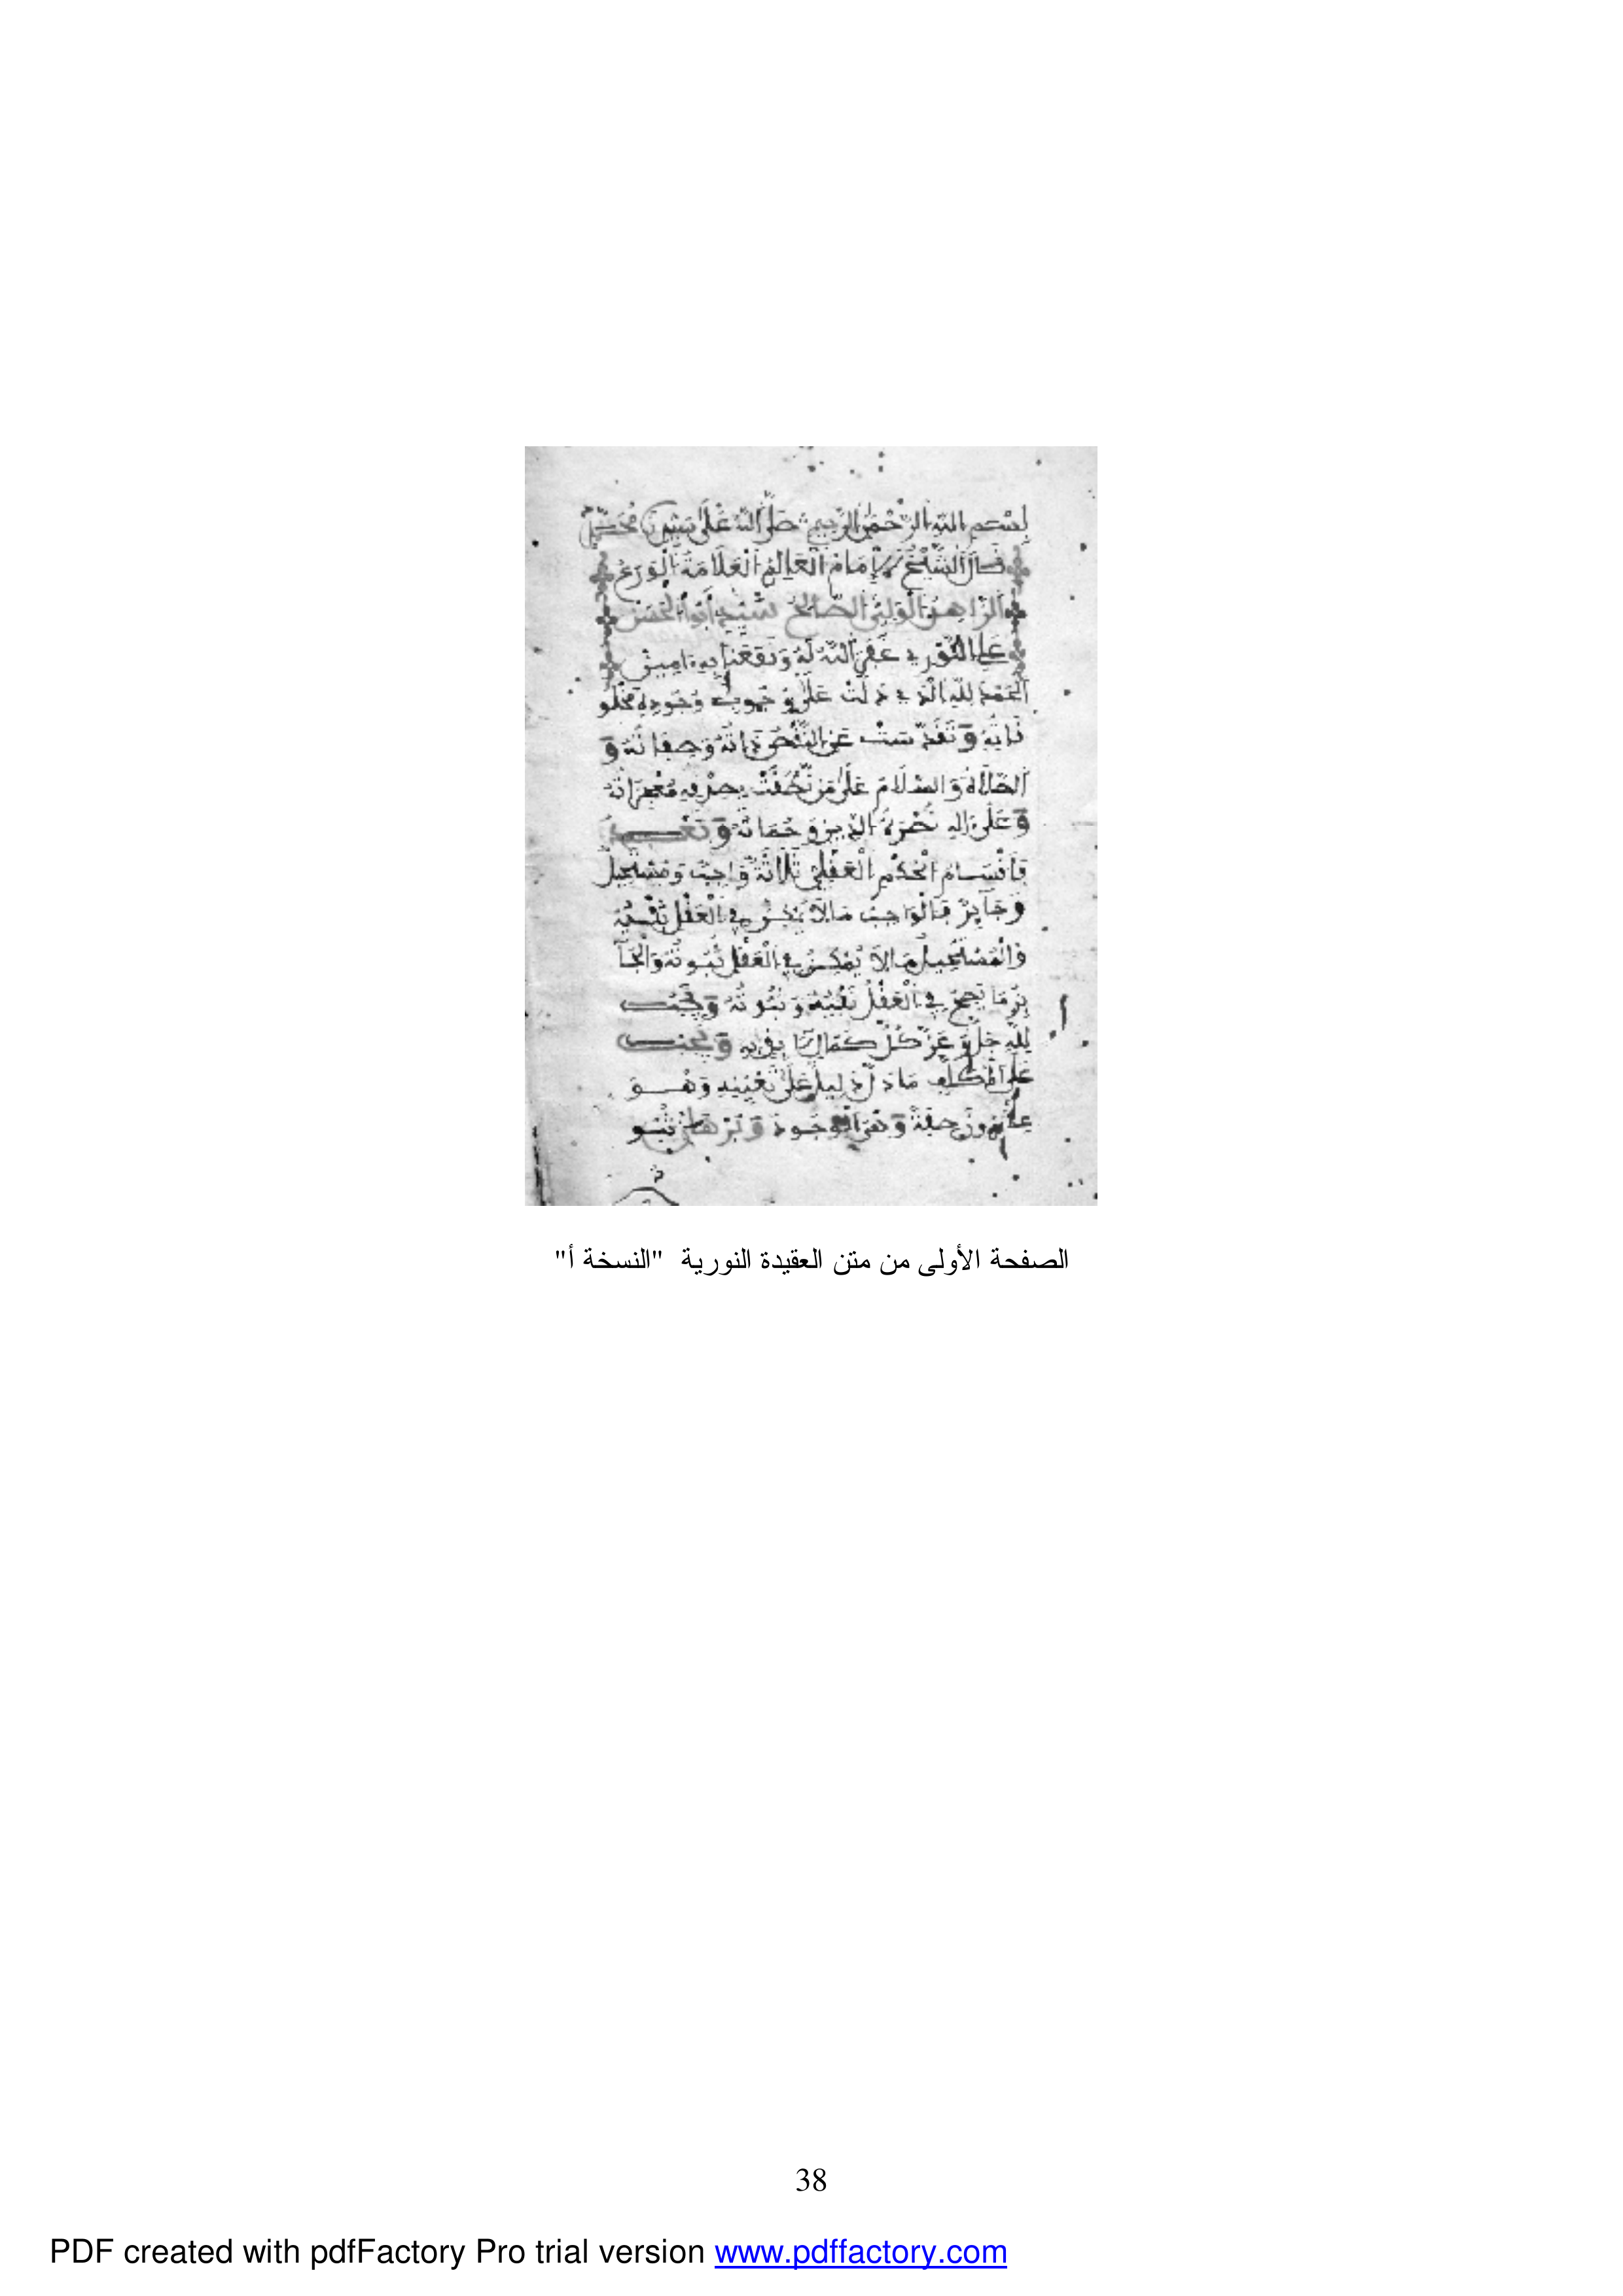 بسم الله الرحمن الرحيم صلى الله على سيدنا محمد
قال الشيخ الإمام العالم العلامة الورع
الزاهد الولي الصالح سيدي أبو الحسن
علي النوري غفر الله له ونفعنا به ءامين
الحمد لله الذي دلت على وجوب وجوده مخلو
قاته وتقدست عن النقص ذاته وصفاته و
الصلاة والسلام على من نطقت بصدقه معجزاته
وعلى ءاله نصرة الدين وحماته وبعد
فأقسام الحكم العقلي ثلاثة واجب ومستحيل
وجايز فالواجب ما لا يمكن في العقل نفيه
والمستحيل ما لا يمكن في العقل ثبوته والجا
يز ما يصح في العقل نفيه وثبوته ويجب
لله جل وعز كل كمال لايق به ويجب
على المكلف ما دل دليل على تعيينه وهو
عشرون صفة وهي الوجود وبرهان ثبو
الصفحة الأولى من متن العقيدة النورية "النسخة أ"
38
PDF created with pdfFactory Pro trial version www.pdffactory.com